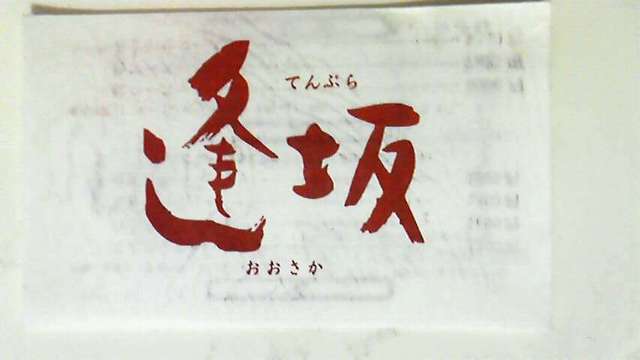 てんぷら
逢坂
おおさか